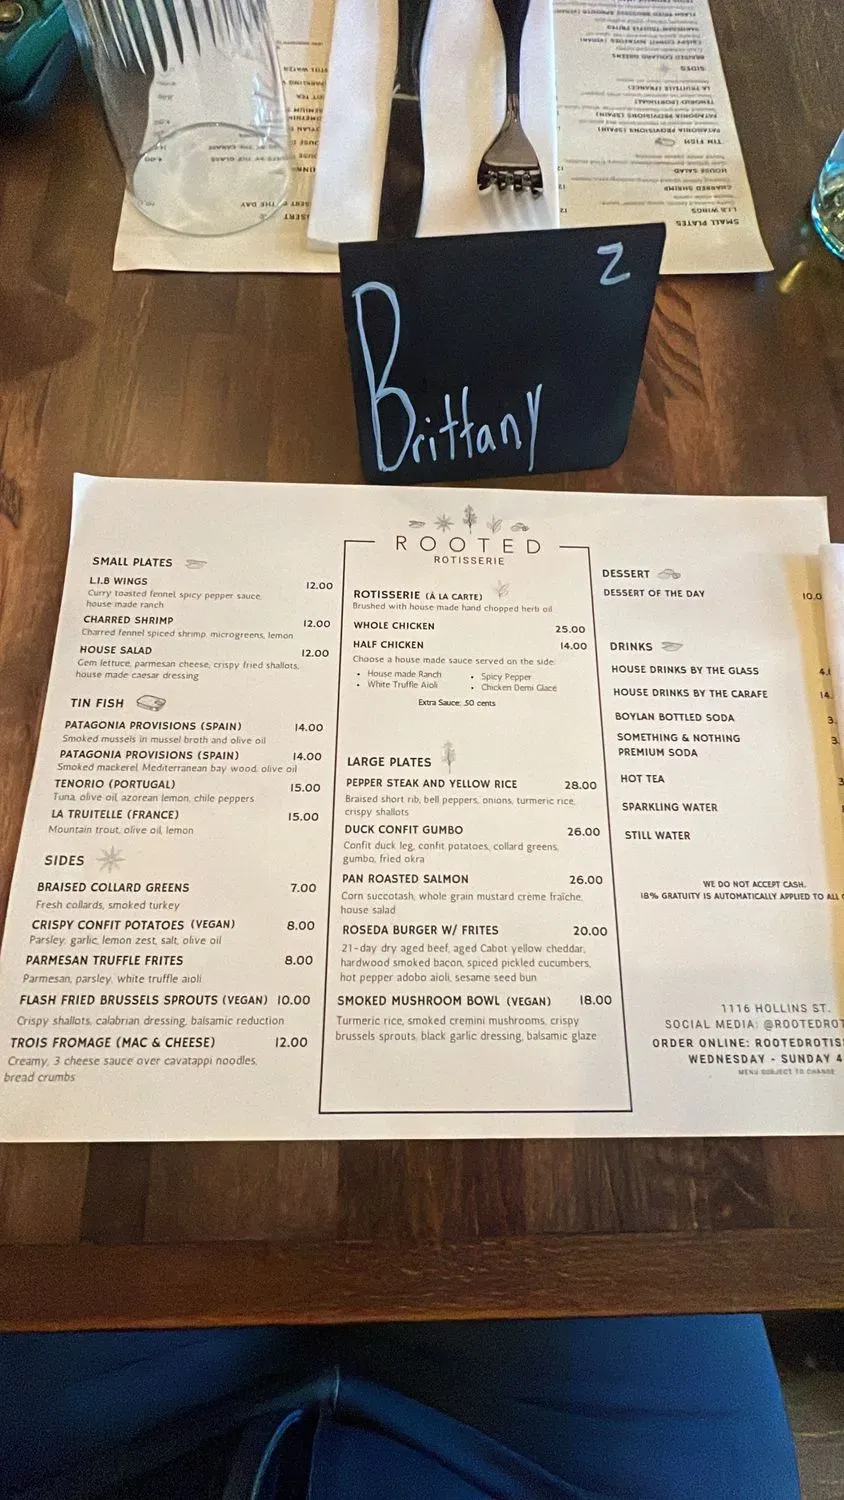 2
Brittany
ROOTED
ROTISSERIE
SMALL PLATES
L.I.B WINGS 12.00
Curry toasted fennel spicy pepper sauce,
house made ranch
CHARRED SHRIMP 12.00
Charred fennel spiced shrimp, microgreens, lemon
HOUSE SALAD 12.00
Gem lettuce, parmesan cheese, crispy fried shallots,
house made caesar dressing
TIN FISH
PATAGONIA PROVISIONS (SPAIN) 14.00
Smoked mussels in mussel broth and olive oil
PATAGONIA PROVISIONS (SPAIN) 14.00
Smoked mackerel, Mediterranean bay wood, olive oil
TENORIO (PORTUGAL) 15.00
Tuna, olive oil, azorean lemon, chile peppers
LA TRUITELLE (FRANCE) 15.00
Mountain trout, olive oil, lemon
SIDES
BRAISED COLLARD GREENS 7.00
Fresh collards, smoked turkey
CRISPY CONFIT POTATOES (VEGAN) 8.00
Parsley, garlic, lemon zest, salt, olive oil
PARMESAN TRUFFLE FRITES 8.00
Parmesan, parsley, white truffle aioli
FLASH FRIED BRUSSELS SPROUTS (VEGAN) 10.00
Crispy shallots, calabrian dressing, balsamic reduction
TROIS FROMAGE (MAC & CHEESE) 12.00
Creamy, 3 cheese sauce over cavatappi noodles,
bread crumbs
ROTISSERIE (À LA CARTE)
Brushed with house made hand chopped herb oil
WHOLE CHICKEN 25.00
HALF CHICKEN 14.00
Choose a house made sauce served on the side:
• House made Ranch • Spicy Pepper
• White Truffle Aioli • Chicken Demi Glace
Extra Sauce: .50 cents
LARGE PLATES
PEPPER STEAK AND YELLOW RICE 28.00
Braised short rib, bell peppers, onions, turmeric rice,
crispy shallots
DUCK CONFIT GUMBO 26.00
Confit duck leg, confit potatoes, collard greens,
gumbo, fried okra
PAN ROASTED SALMON 26.00
Corn succotash, whole grain mustard crème fraîche,
house salad
ROSEDA BURGER W/ FRITES 20.00
21-day dry aged beef, aged Cabot yellow cheddar,
hardwood smoked bacon, spiced pickled cucumbers,
hot pepper adobo aioli, sesame seed bun
SMOKED MUSHROOM BOWL (VEGAN) 18.00
Turmeric rice, smoked cremini mushrooms, crispy
brussels sprouts, black garlic dressing, balsamic glaze
DESSERT
DESSERT OF THE DAY 10.0
DRINKS
HOUSE DRINKS BY THE GLASS 4.
HOUSE DRINKS BY THE CARAFE 14.
BOYLAN BOTTLED SODA 3.
SOMETHING & NOTHING 3.
PREMIUM SODA
HOT TEA 3
SPARKLING WATER
STILL WATER
WE DO NOT ACCEPT CASH.
18% GRATUITY IS AUTOMATICALLY APPLIED TO ALL
1116 HOLLINS ST.
SOCIAL MEDIA: @ROOTEDROT
ORDER ONLINE: ROOTEDROTIS
WEDNESDAY - SUNDAY 4
MENU SUBJECT TO CHANGE